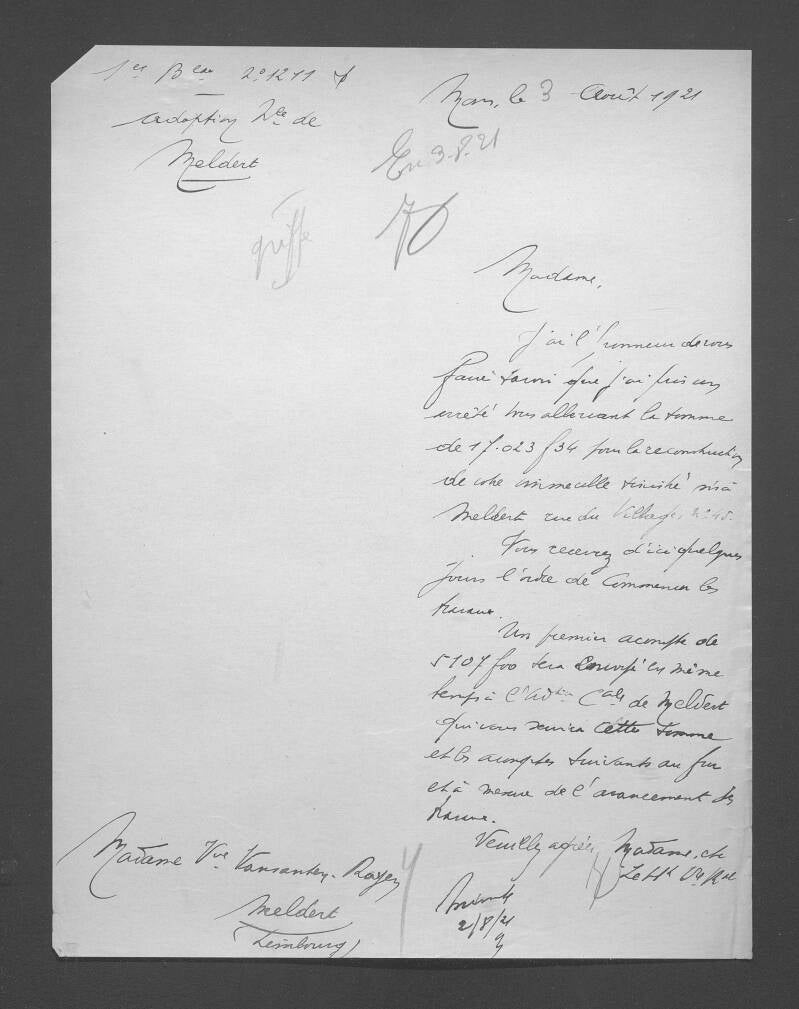 1er Beau 2°1211
Mons, le 3 Août 1921
adoption Nle de
Meldert
En 3.8.21
griffe
Madame,
J'ai l'honneur de vous
faire savoir que j'ai pris un
arrêté vous allouant la somme
de 17.023 f 34 pour la reconstruction
de votre immeuble sinistré sis à
Meldert rue du Village, n° 45.
Vous recevrez d'ici quelques
jours l'ordre de commencer les
travaux.
Un premier acompte de
5107 f 00 sera envoyé en même
temps à l'Adtion Cale de Meldert
qui vous remettra cette somme
et les acomptes suivants au fur
et à mesure de l'avancement des
travaux.
Veuillez agréer, Madame, etc
Le Ht Cre Ral
Madame Vve Vansanten-Rayen
Meldert
(Limbourg)
2/8/21